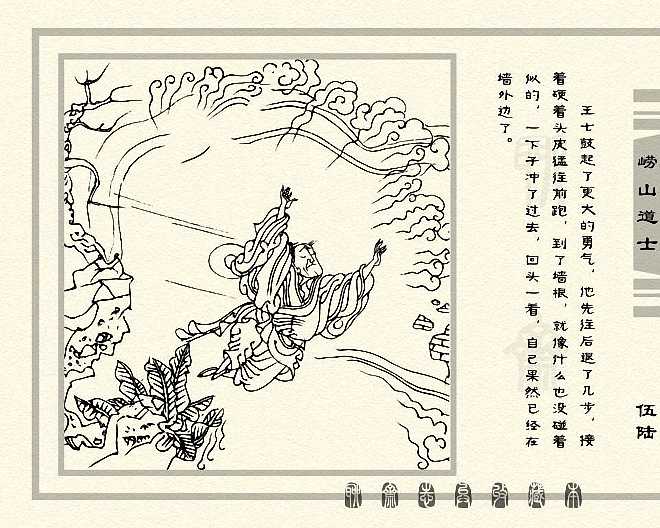 王士鼓起了更大的勇气，他先往后退了几步，接
着硬着头皮猛往前跑，到了墙根，就像什么也没碰着
似的，一下子冲了过去，回头一看，自己果然已经在
墙外边了。
崂山道士
伍陆
聊斋志异收藏本